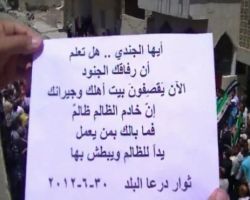 أيها الجندي .. هل تعلم
أن رفاقك الجنود
الآن يَقصفون بيت أهلك وجيرانك
إنّ خادم الظالم ظالمٌ
فما بالك بمن يعمل
يداً للظالم ويبطش بها
ثوار درعا البلد ٣٠-٦-٢٠١٢